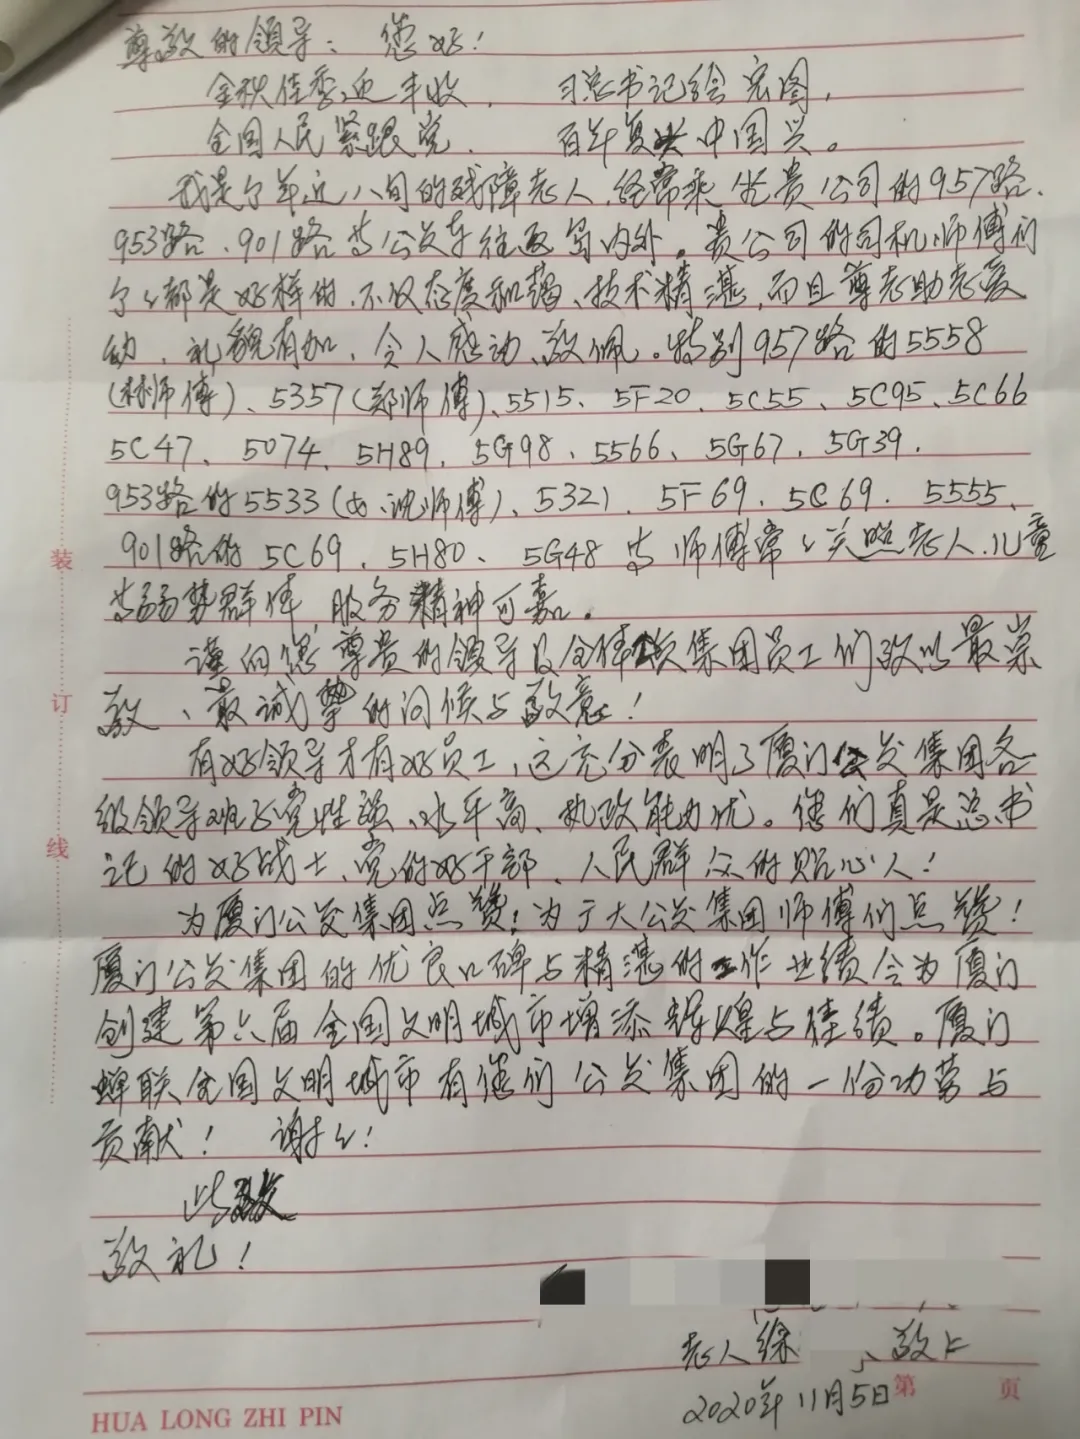 尊敬的领导：您好！
金秋佳季迎丰收，习总书记绘宏图，
全国人民紧跟党，百年复兴中国兴。
我是个年近八旬的残障老人，经常乘坐贵公司的957路、
953路、901路等公交车往返岛内外。贵公司的司机师傅们
个个都是好样的，不仅态度和蔼、技术精湛，而且尊老助老爱
幼，礼貌有加，令人感动、敬佩。特别957路的5558
(林师傅)、5357(郑师傅)、5515、5F20、5C55、5C95、5C66
5C47、5074、5H89、5G98、5566、5G67、5G39.
953路的5533(女、沈师傅)、5321、5F69、5C69、5555、
901路的5C69、5H80、5G48等师傅常々关照老人、儿童
等弱势群体，服务精神可嘉。
谨向您尊贵的领导及全体集团员工们致以最崇
敬、最诚挚的问候与敬意！
有好领导才有好员工，这充分表明了厦门公交集团各
级领导班子党性强、水平高、执政能力优。您们真是总书
记的好战士、党的好干部、人民群众的贴心人！
为厦门公交集团点赞！为广大公交集团师傅们点赞！
厦门公交集团的优良口碑与精湛的工作业绩会为厦门
创建第六届全国文明城市增添辉煌与佳绩。厦门
蝉联全国文明城市有您们公交集团的一份功劳与
贡献！谢々！
此致
敬礼！
老人徐 敬上
2020年11月5日
第 页
装
订
线
HUA LONG ZHI PIN